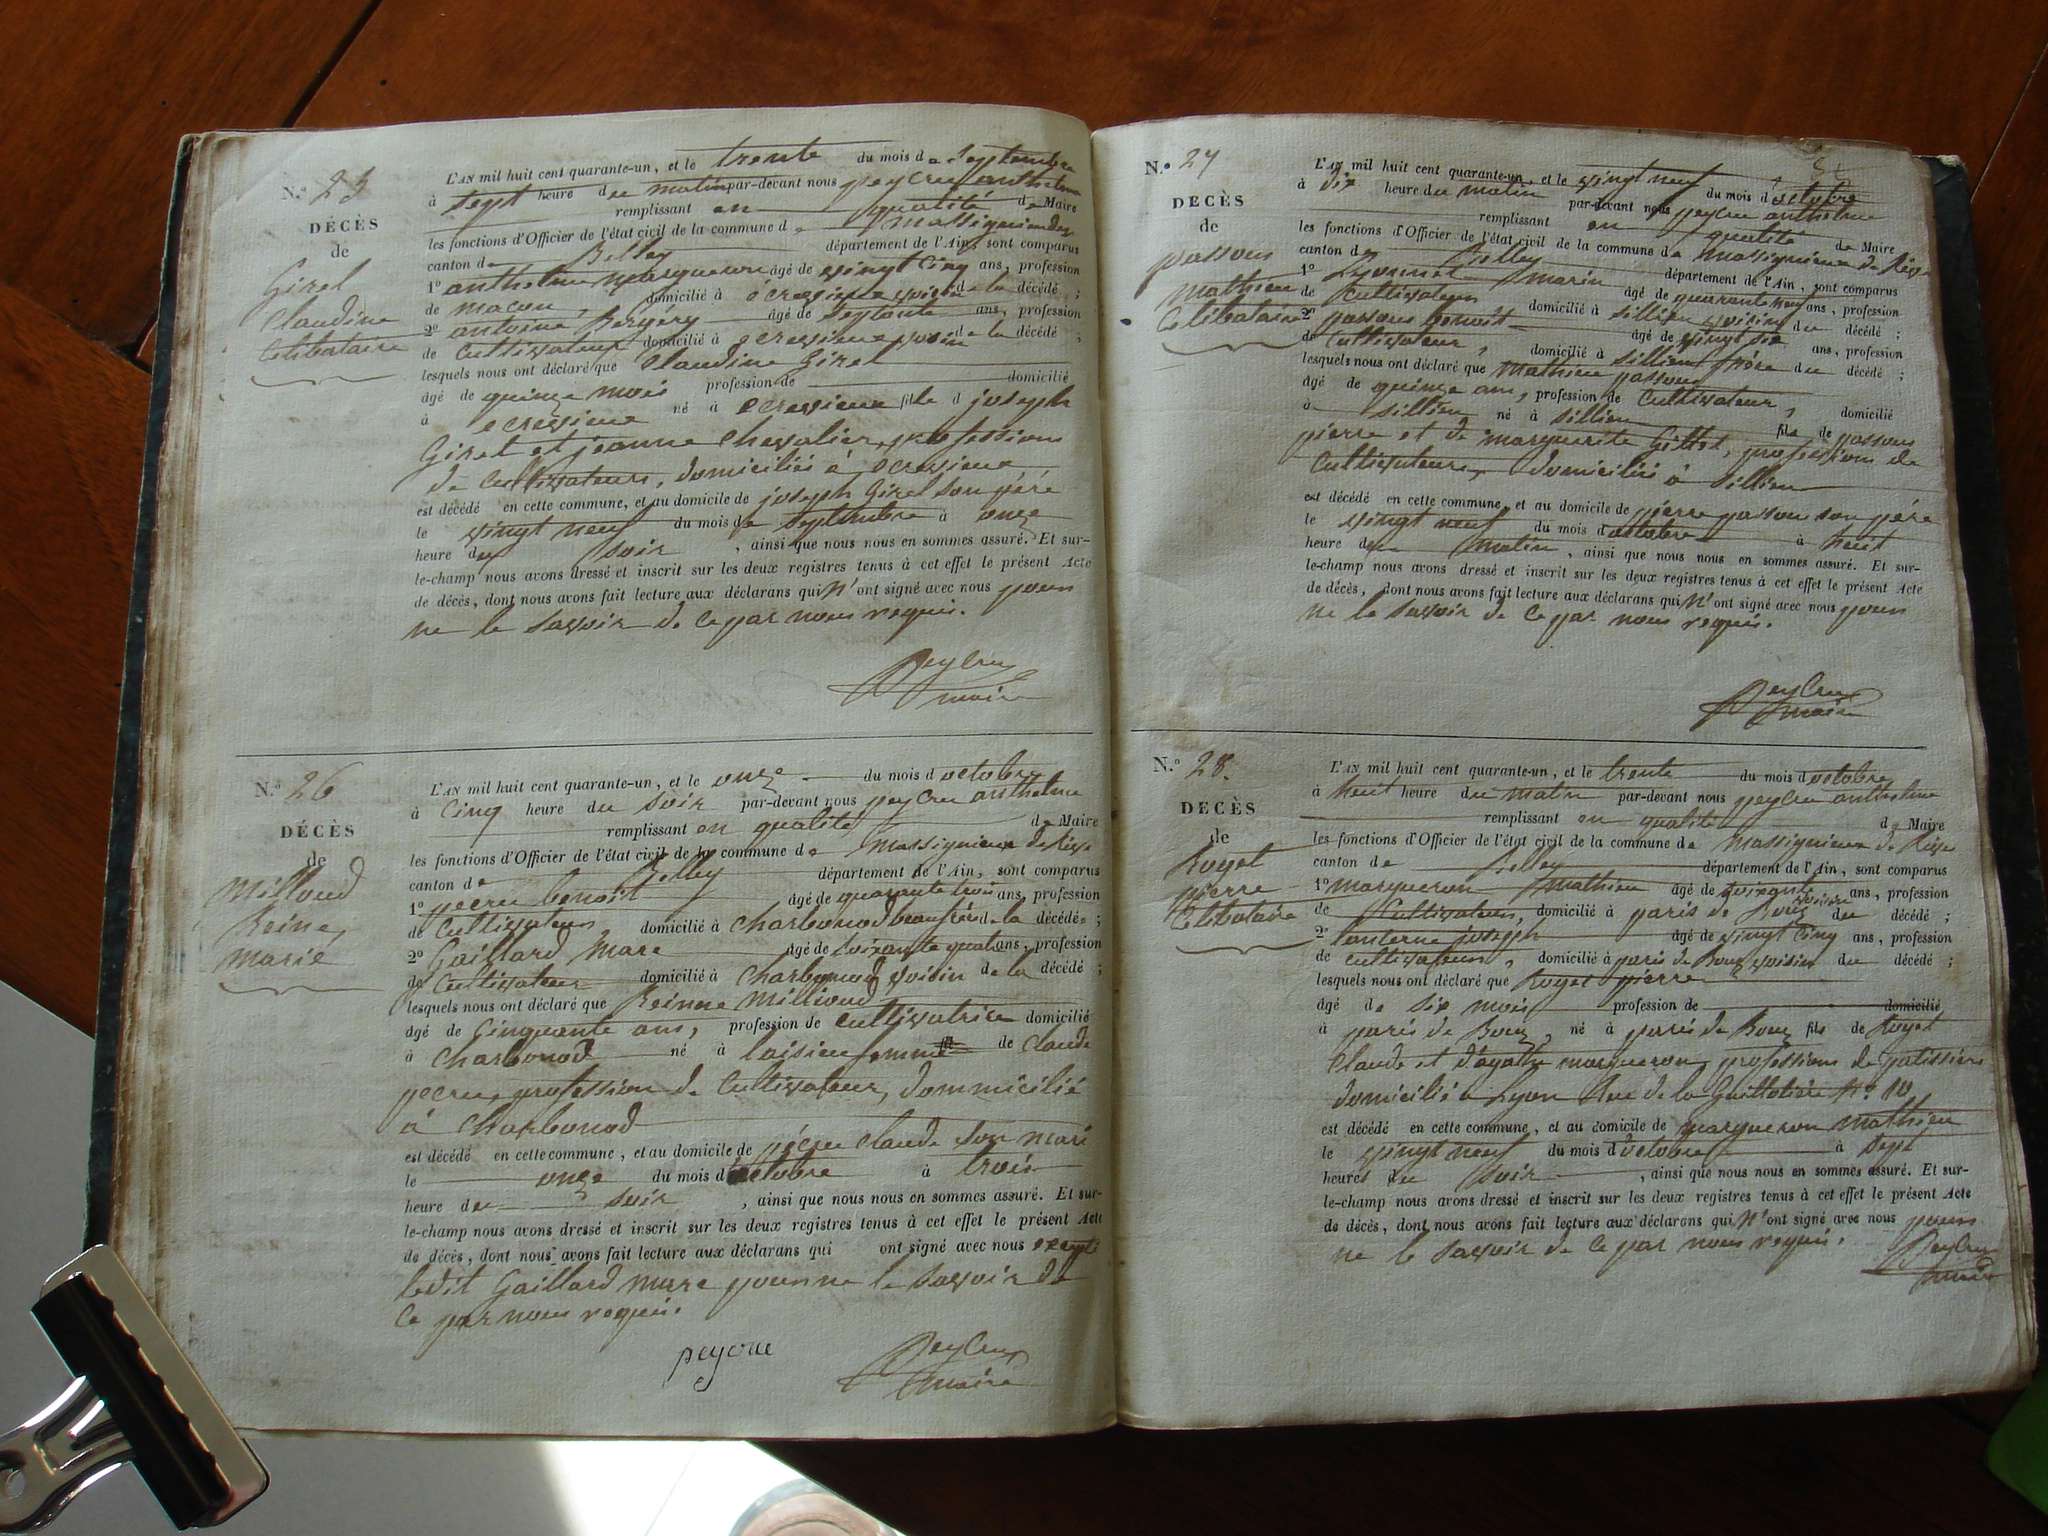 N.º 25
DÉCÈS
de
Girel
Claudine
Celibataire
L'AN mil huit cent quarante-un, et le trente du mois de Septembre
à sept heure du matin par-devant nous peycru anthelme
remplissant en qualité de Maire
les fonctions d'Officier de l'état civil de la commune de massignieu de
canton de Belley département de l'Ain, sont comparus
1º anthelme marqueron âgé de vingt cinq ans, profession
de macon, domicilié à écressieux voisin de la décédé ;
2º antoine Bergery âgé de septante ans, profession
de Cultivateur domicilié à écressieux voisin de la décédé ;
lesquels nous ont déclaré que Claudine Girel
âgé de quinze mois profession de domicilié
à ecressieux né à ecressieux fille d joseph
Girel et jeanne Chevalier, professions
de Cultivateurs, domiciliés à écressieux
est décédé en cette commune, et au domicile de joseph Girel son père
le vingt neuf du mois de septembre à onze
heure du soir , ainsi que nous nous en sommes assuré. Et sur-
le-champ nous avons dressé et inscrit sur les deux registres tenus à cet effet le présent Acte
de décès, dont nous avons fait lecture aux déclarans qui N'ont signé avec nous pour
ne le savoir de ce par nous requis.
Peycru
maire
N.º 26
DÉCÈS
de
Millioud
Reine,
Marié
L'AN mil huit cent quarante-un, et le onze du mois d octobre
à Cinq heure du soir par-devant nous peycru anthelme
remplissant en qualité de Maire
les fonctions d'Officier de l'état civil de la commune de massignieux de Rive
canton de Belley département de l'Ain, sont comparus
1º pecru benoit âgé de quarante trois ans, profession
de Cultivateur domicilié à Charbonod beaufrère de la décédée ;
2º Gaillard Marc âgé de soixante quatre ans, profession
de Cultivateur domicilié à Charbonod voisin de la décédé ;
lesquels nous ont déclaré que Reine Millioud
âgé de Cinquante ans, profession de cultivatrice domicilié
à Charbonod né à loisieu femme de Claude
pecru, profession de Cultivateur, dommicilié
à Charbonod
est décédé en cette commune, et au domicile de pécru Claude son mari
le onze du mois d octobre à trois
heure du soir , ainsi que nous nous en sommes assuré. Et sur-
le-champ nous avons dressé et inscrit sur les deux registres tenus à cet effet le présent Acte
de décès, dont nous avons fait lecture aux déclarans qui ont signé avec nous excepté
ledit Gaillard marc pour ne le savoir de
ce par nous requis.
peycru
Peycru
maire
N.º 27
DÉCÈS
de
passous
Mathieu
Celibataire
L'AN mil huit cent quarante-un, et le vingt neuf du mois d'octobre
à dix heure du matin par-devant nous peycru anthelme
remplissant en qualité de Maire
les fonctions d'Officier de l'état civil de la commune de massignieux de Rive
canton de Belley département de l'Ain, sont comparus
1º marin âgé de quarante neuf ans, profession
de Cultivateur domicilié à Sillieu voisin du décédé ;
2º passous benoit âgé de vingt six ans, profession
de Cultivateur, domicilié à Sillieu frère du décédé ;
lesquels nous ont déclaré que Mathieu passous
âgé de quinze ans, profession de Cultivateur, domicilié
à Sillieu né à Sillieu fils de passous
pierre et de marguerite Gillet, professions de
Cultivateurs, domiciliés à Sillieu
est décédé en cette commune, et au domicile de pierre passous son père
le vingt neuf du mois d'octobre à huit
heure du matin , ainsi que nous nous en sommes assuré. Et sur-
le-champ nous avons dressé et inscrit sur les deux registres tenus à cet effet le présent Acte
de décès, dont nous avons fait lecture aux déclarans qui N'ont signé avec nous pour
ne le savoir de ce par nous requis.
Peycru
maire
N.º 28.
DÉCÈS
de
Royet
pierre
Celibataire
L'AN mil huit cent quarante-un, et le trente du mois d'octobre
à huit heure du matin par-devant nous peycru anthelme
remplissant en qualité de Maire
les fonctions d'Officier de l'état civil de la commune de massignieux de Rive
canton de Belley département de l'Ain, sont comparus
1º marqueron mathieu âgé de soixante ans, profession
de Cultivateur, domicilié à paris de Bouz voisin du décédé ;
2º lanterne joseph âgé de vingt Cinq ans, profession
de cultivateur, domicilié à paris de Bouz voisin du décédé ;
lesquels nous ont déclaré que Royet pierre
âgé de six mois profession de domicilié
à paris de Bouz, né à paris de Bouz fils de Royet
Claude et d'agathe marqueron, professions de patissier
domicilié à Lyon Rue de la Guillotière Nº 10
est décédé en cette commune, et au domicile de marqueron mathieu
le vingt neuf du mois d'octobre à sept
heures du soir , ainsi que nous nous en sommes assuré. Et sur-
le-champ nous avons dressé et inscrit sur les deux registres tenus à cet effet le présent Acte
de décès, dont nous avons fait lecture aux déclarans qui N'ont signé avec nous pour
ne le savoir de ce par nous requis.
Peycru
maire